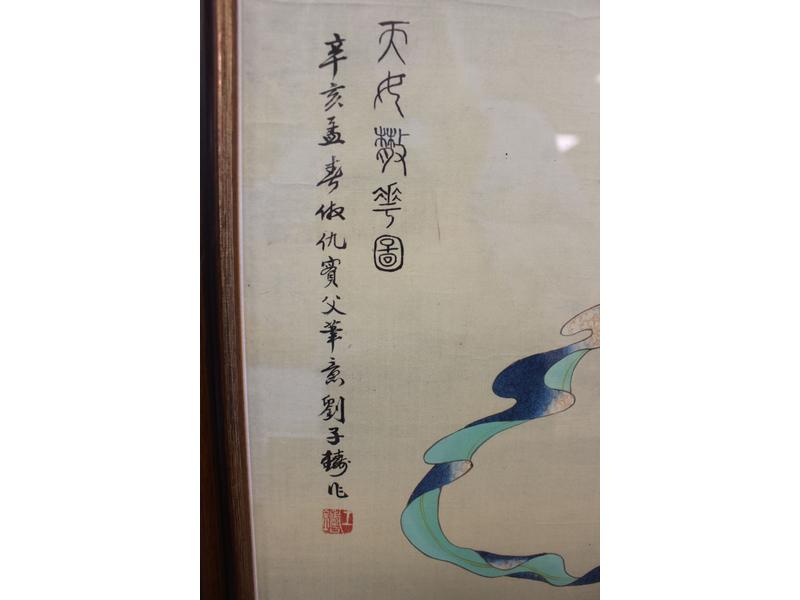 天女散花圖
辛亥孟春倣仇實父筆意劉子鑄作